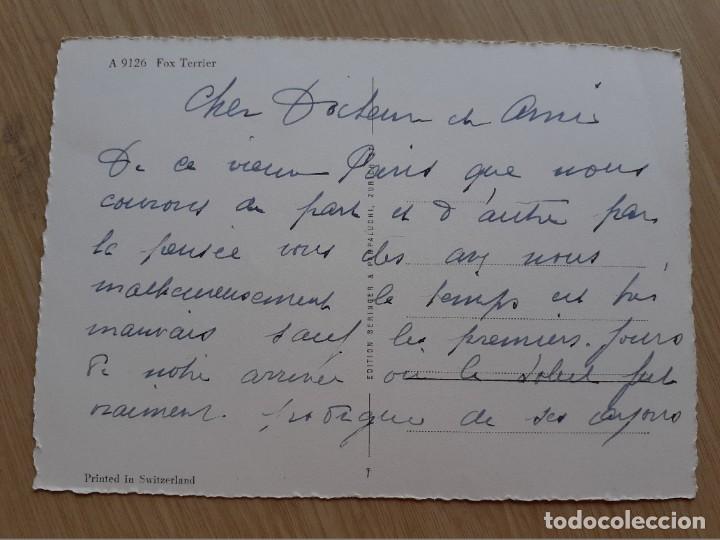 A 9126 Fox Terrier
Cher Docteur et Amie
De ce vieux Paris que nous
courons de part et d'autre par
la pensée vous
nous
malheureusement le temps est très
mauvais sauf les premiers jours
de notre arrivée où le soleil fut
vraiment prodigue de ses rayons
EDITION BERINGER & PAMPALUCHI, ZURICH
Printed in Switzerland
todocoleccion
todocoleccion.net